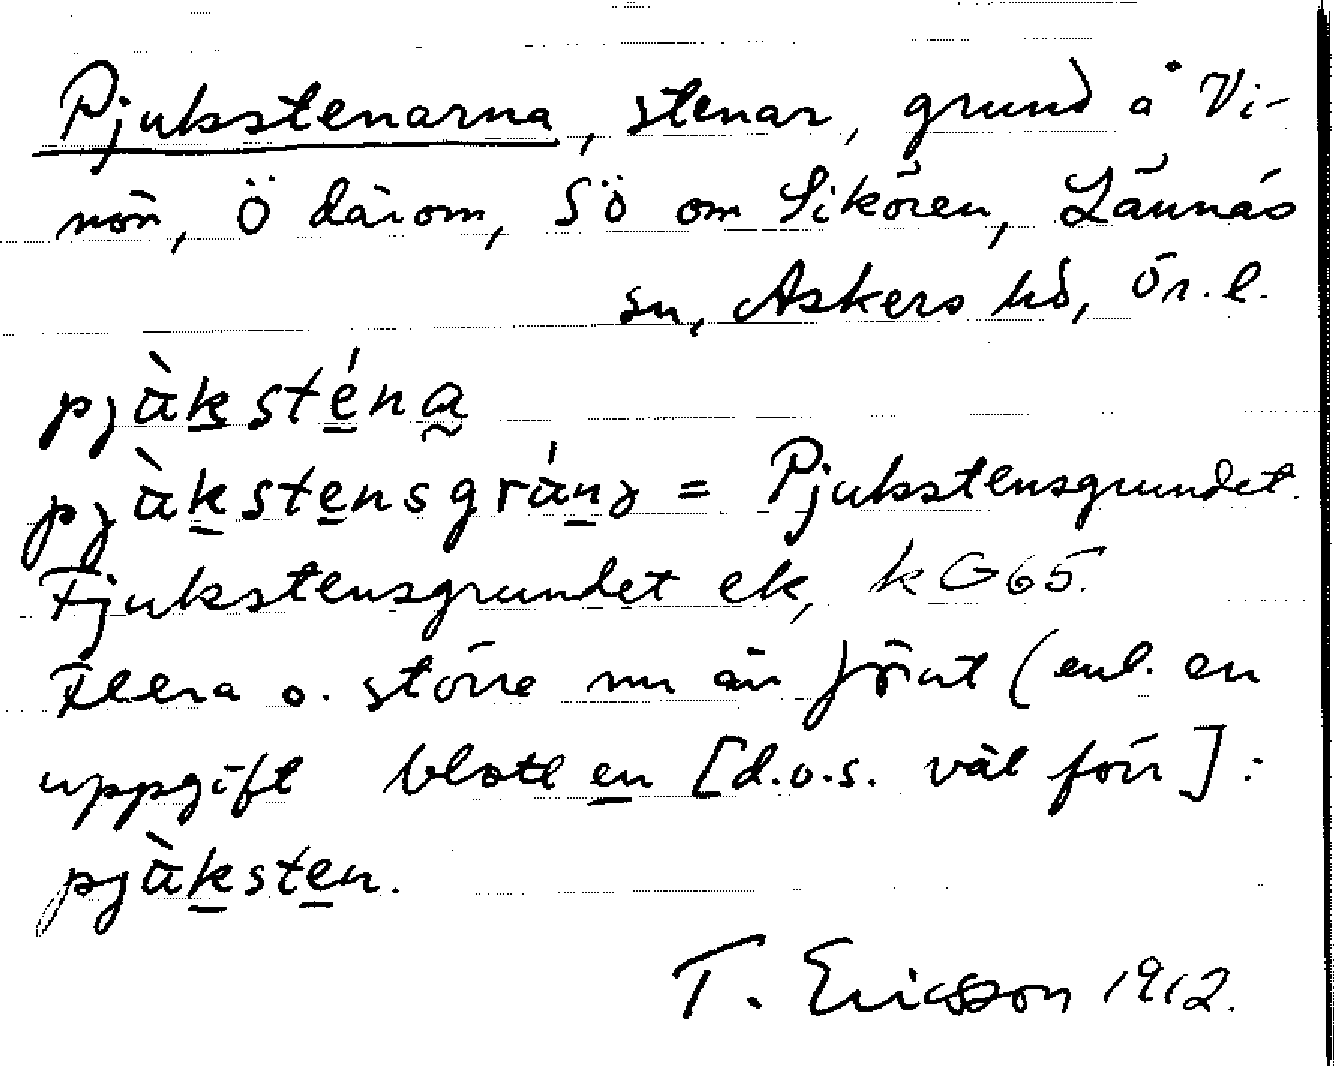 Pjuksstenarna, stenar, grund å Vi-
nön, Ö därom, SÖ om Sikören, Lännäs
sn, Askers hd, Ör. l.
pjŭ̀ksténa
pjŭ̀kstensgrúnd = Pjukstensgrundet.
Fjukstensgrundet ek, kG65.
Flera o. större nu än förut (enl. en
uppgift blott en [d.o.s. väl förr]:
pjŭ̀ksten.
T. Ericsson 1912.